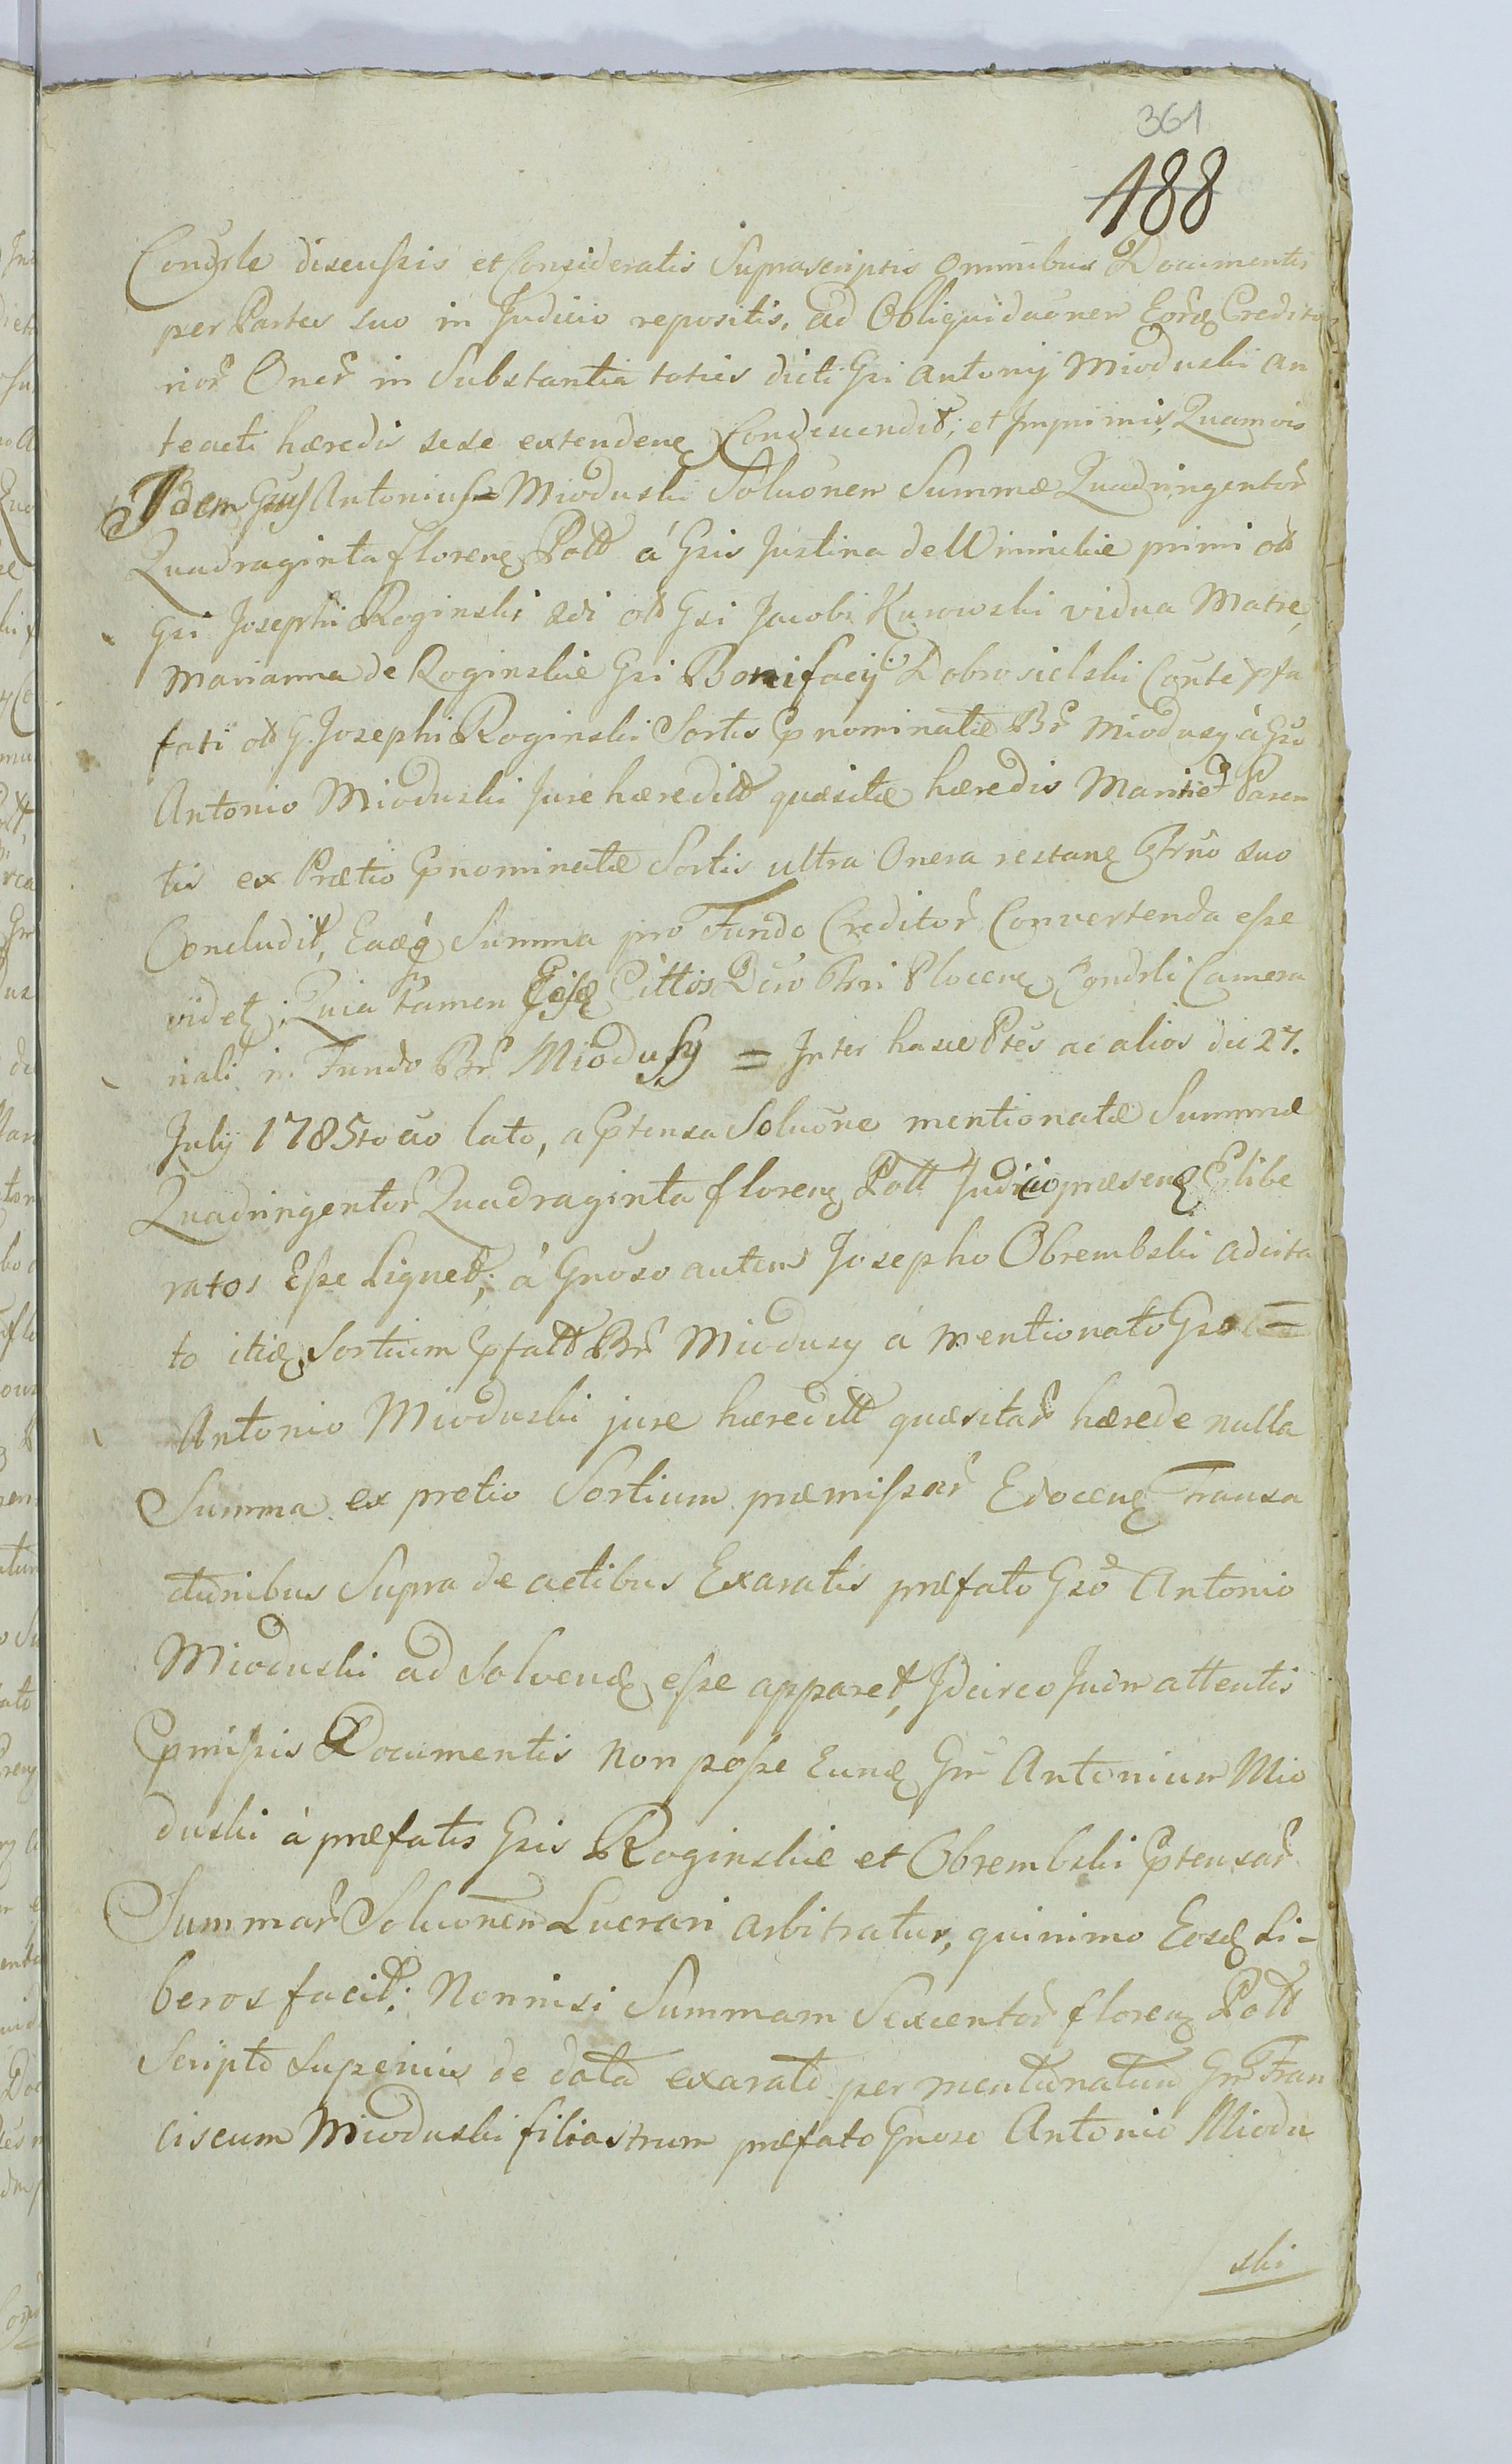 361
188
Condrle discussis et Consideratis Suprascriptis omnibus Documentis
per Partes suo in Judicio repositis, ad Obliquidaõnen Eorũ Credito
rior̃ Oner̃ in Substantia toties dicti Gsi Antonij Mioduski an
teacti hæredis sese extendenꝫ Condescendit; et Imprimis, Quamvis
Idem Gsus Antonius = Mioduski Soluõnem Summæ Quadringentor̃
Quadraginta florenꝫ Poltt á Gsis Justina de Winnickie primi ott
Gsi Josephi Roginski 2di ott Gsi Jacobi Kurowski vidua Matre,
Marianna de Roginskie Gsi Bonifacij Dobrosielski Conte pfa
fati ott G. Josephi Roginski Sortis pnominatæ Br̃ Miodusy à Gso
Antonio Mioduski Jure hæreditt quæsitæ hæredis Parer
tis ex Prætio pnominatæ Sortis ultra Onera restanꝫ suo
Concludit, Eaꝫq Summa pro Fundo Creditor̃ Convertenda esse
videtꝫ; Quia tamen Eosꝫ Cittos Plocenꝫ Condrli Camera
nali in Fundo Br̃ Miodusy = Inter hasce Ptes ac alios die 27.
July 1785to ao lato, a ptensa Soluõne mentionatæ Summæ
Quadringentor̃ Quadraginta florenꝫ Poltt Judicio præsenꝫ Elibe
ratos Esse Liquet; á Gnoso autem Josepho Obrembski adcita
to itiꝫ Sortium pfatt Br̃ Miodusy á mentionato Gso =
Antonio Mioduski jure hæreditt quæsitar̃ hærede nulla
Summa ex pretio Sortium præmissar̃ Edocenꝫ Transa
ctionibus Supra de actibus Exaratis præfato Gso Antonio
Mioduski ad solvendꝫ esse apparet, Idcirco Judm attentis
pmissis Documentis non posse Eundꝫ Gm Antonium Mio
duski à præfatis Gsis Roginskie et Obrembski ptensar̃
Summar̃ Soluõnem Lucrari arbitratur, quinimo Eosdꝫ Li-
beros facit; Nonnisi Summam Sexcentor̃ florenꝫ Poltt
Scripto superius de data exarato per mentionatum Gm Fran
ciscum Mioduski filiastrum præfato Gnoso Antonio Miodu
ski